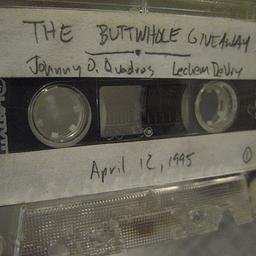 THE BUTTWHOLE GIVEAWAY
Johnny O. Quadros Lechem DeVry
April 12, 1995 1